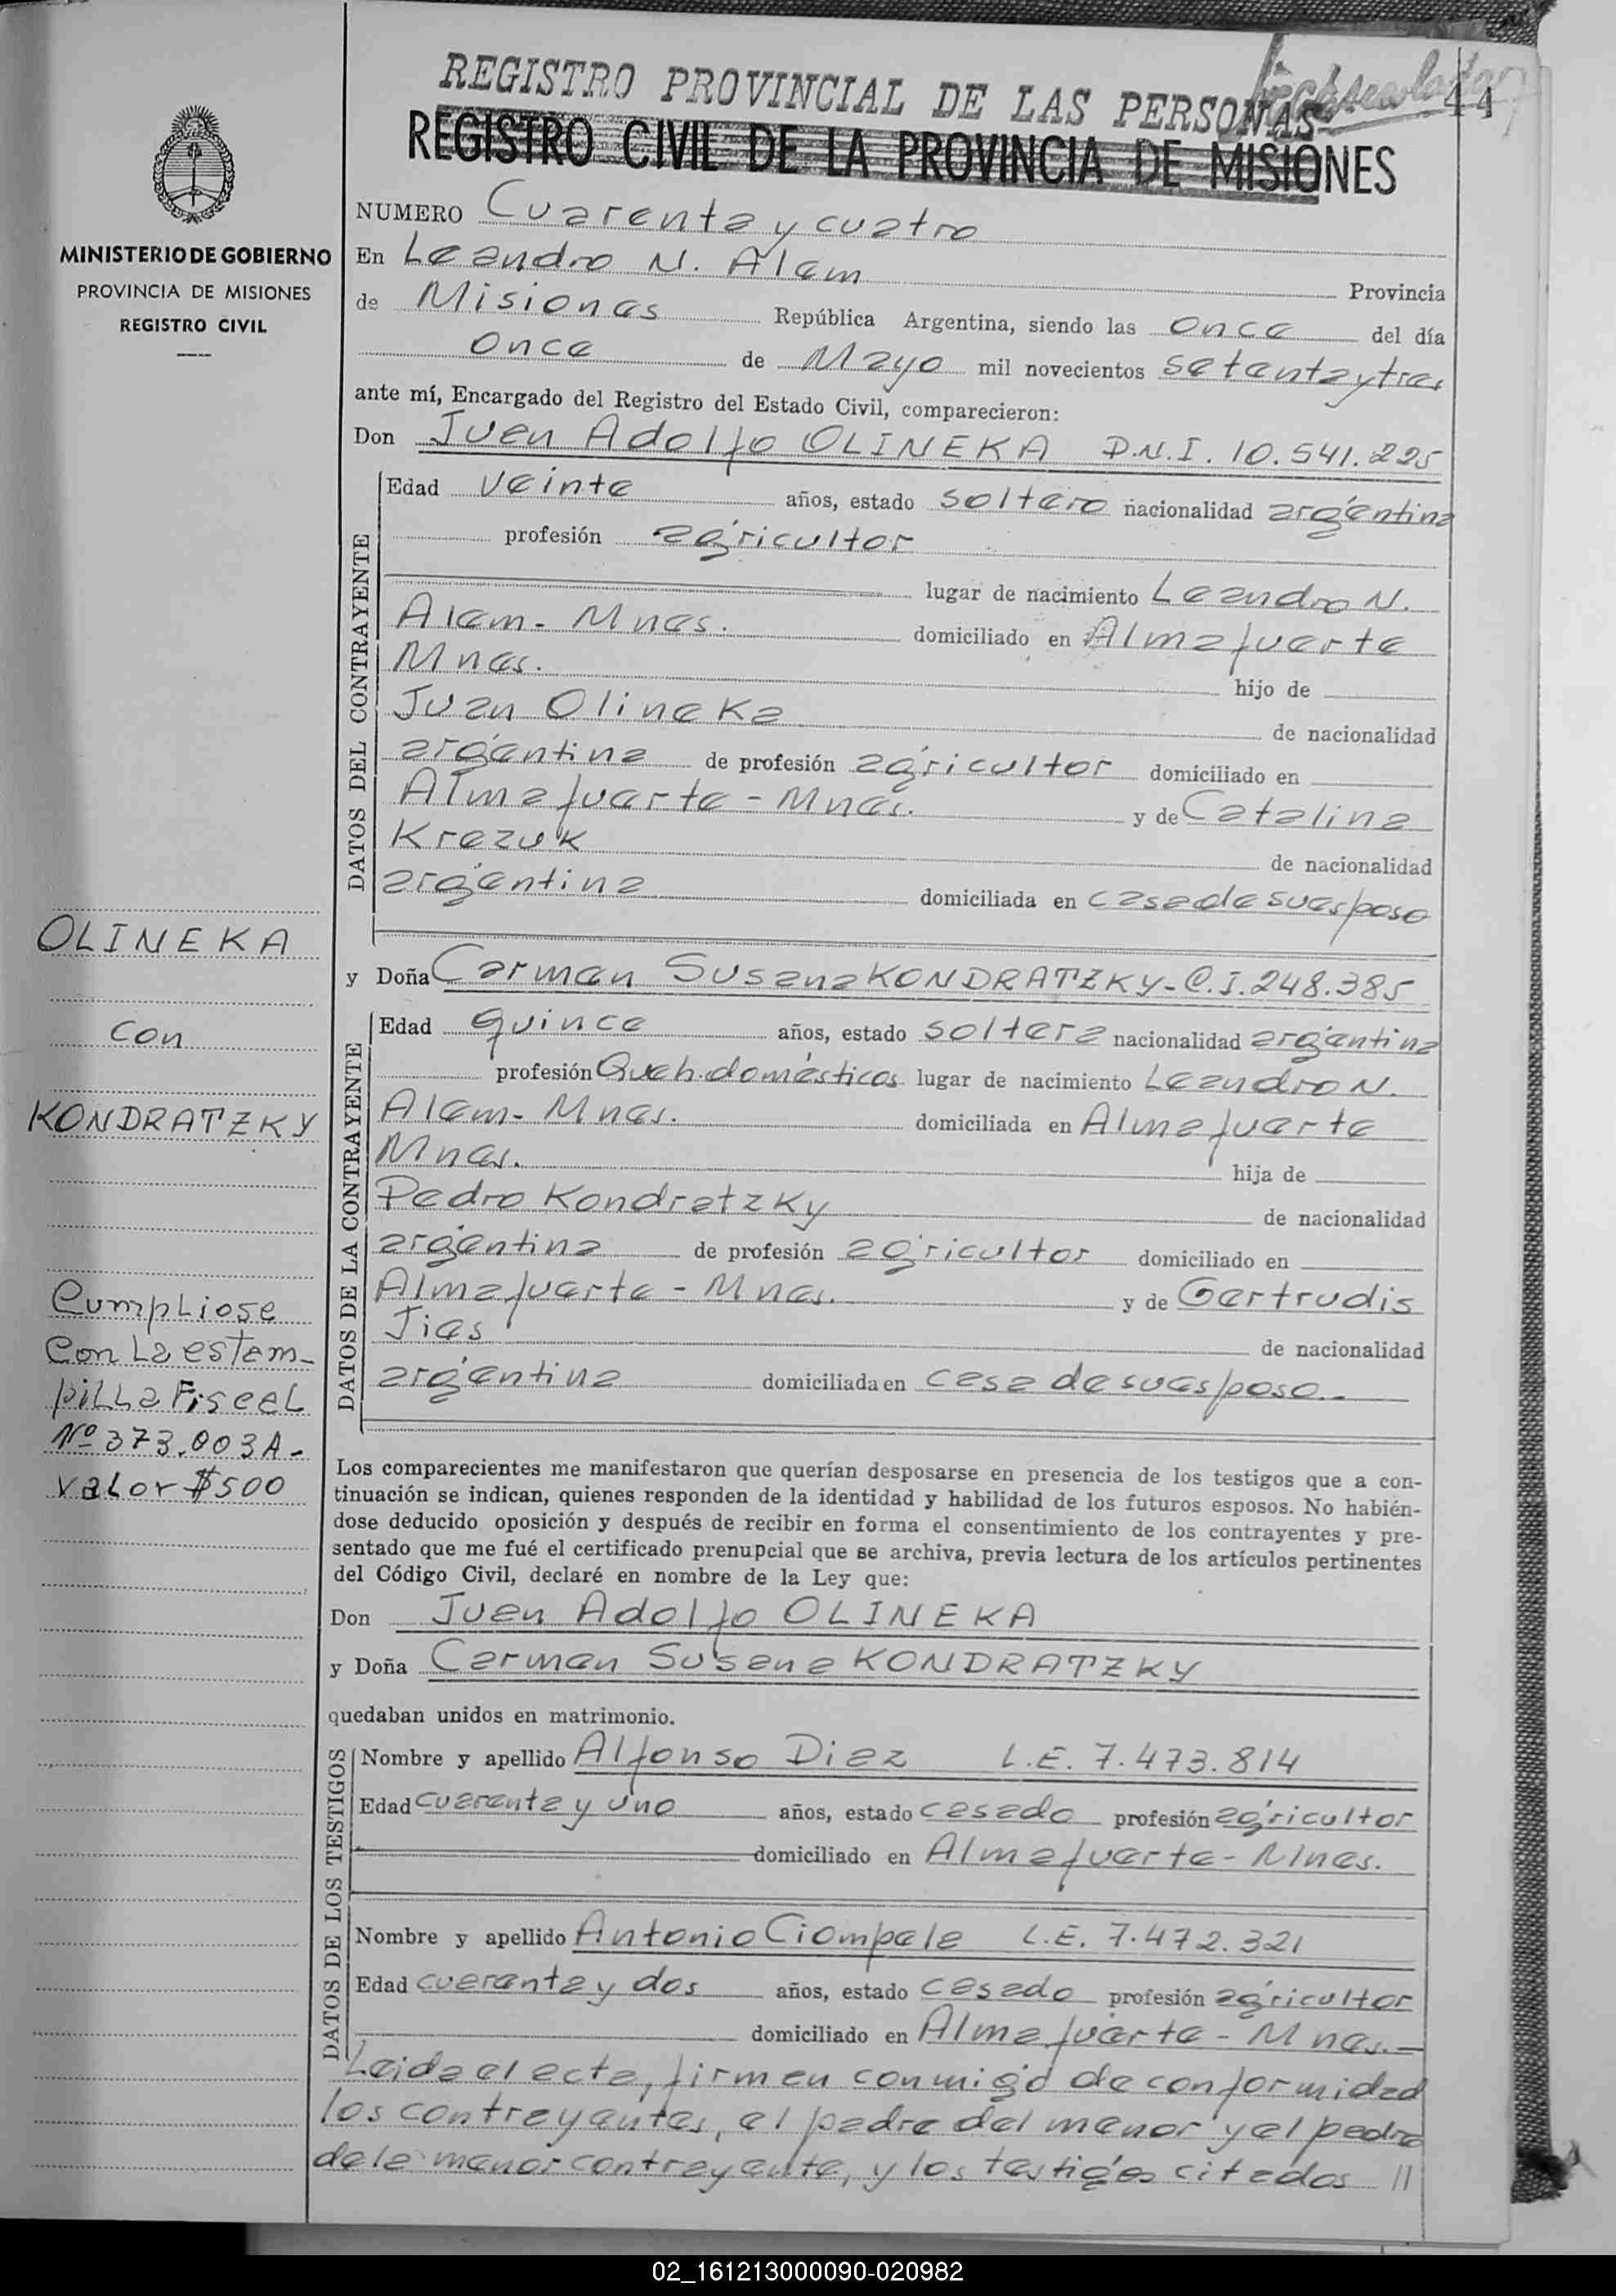 REGISTRO PROVINCIAL DE LAS PERSONAS
44
REGISTRO CIVIL DE LA PROVINCIA DE MISIONES
MINISTERIO DE GOBIERNO
PROVINCIA DE MISIONES
REGISTRO CIVIL
NUMERO Cuarenta y cuatro
En Leandro N. Alem Provincia
de Misiones República Argentina, siendo las once del día
once de Mayo mil novecientos setenta y tres
ante mí, Encargado del Registro del Estado Civil, comparecieron:
Don Juan Adolfo OLINEKA D.N.I. 10.541.225
DATOS DEL CONTRAYENTE
Edad veinte años, estado soltero nacionalidad argentina
profesión agricultor
lugar de nacimiento Leandro N.
Alem - Mnes. domiciliado en Almafuerte
Mnes. hijo de
Juan Olineka de nacionalidad
argentina de profesión agricultor domiciliado en
Almafuerte - Mnes. y de Catalina
Krezuk de nacionalidad
argentina domiciliada en casa de su esposo
y Doña Carmen Susana KONDRATZKY - C.I. 248.385
DATOS DE LA CONTRAYENTE
Edad quince años, estado soltera nacionalidad argentina
profesión Queh. domésticos lugar de nacimiento Leandro N.
Alem - Mnes. domiciliada en Almafuerte
Mnes. hija de
Pedro Kondratzky de nacionalidad
argentina de profesión agricultor domiciliado en
Almafuerte - Mnes. y de Gertrudis
Jies de nacionalidad
argentina domiciliada en casa de su esposo
OLINEKA
con
KONDRATZKY
Cumpliose
con la estam-
pilla Fiscal
Nº 373.003A -
valor $500
Los comparecientes me manifestaron que querían desposarse en presencia de los testigos que a con-
tinuación se indican, quienes responden de la identidad y habilidad de los futuros esposos. No habién-
dose deducido oposición y después de recibir en forma el consentimiento de los contrayentes y pre-
sentado que me fué el certificado prenupcial que se archiva, previa lectura de los artículos pertinentes
del Código Civil, declaré en nombre de la Ley que:
Don Juan Adolfo OLINEKA
y Doña Carmen Susana KONDRATZKY
quedaban unidos en matrimonio.
DATOS DE LOS TESTIGOS
Nombre y apellido Alfonso Diaz L.E. 7.473.814
Edad cuarenta y uno años, estado casado profesión agricultor
domiciliado en Almafuerte - Mnes.
Nombre y apellido Antonio Ciompela L.E. 7.472.321
Edad cuarenta y dos años, estado casado profesión agricultor
domiciliado en Almafuerte - Mnes. -
Leida el acta, firman conmigo de conformidad
los contrayentes, el padre del menor y el padre
de la menor contrayente, y los testigos citados //
02_161213000090-020982